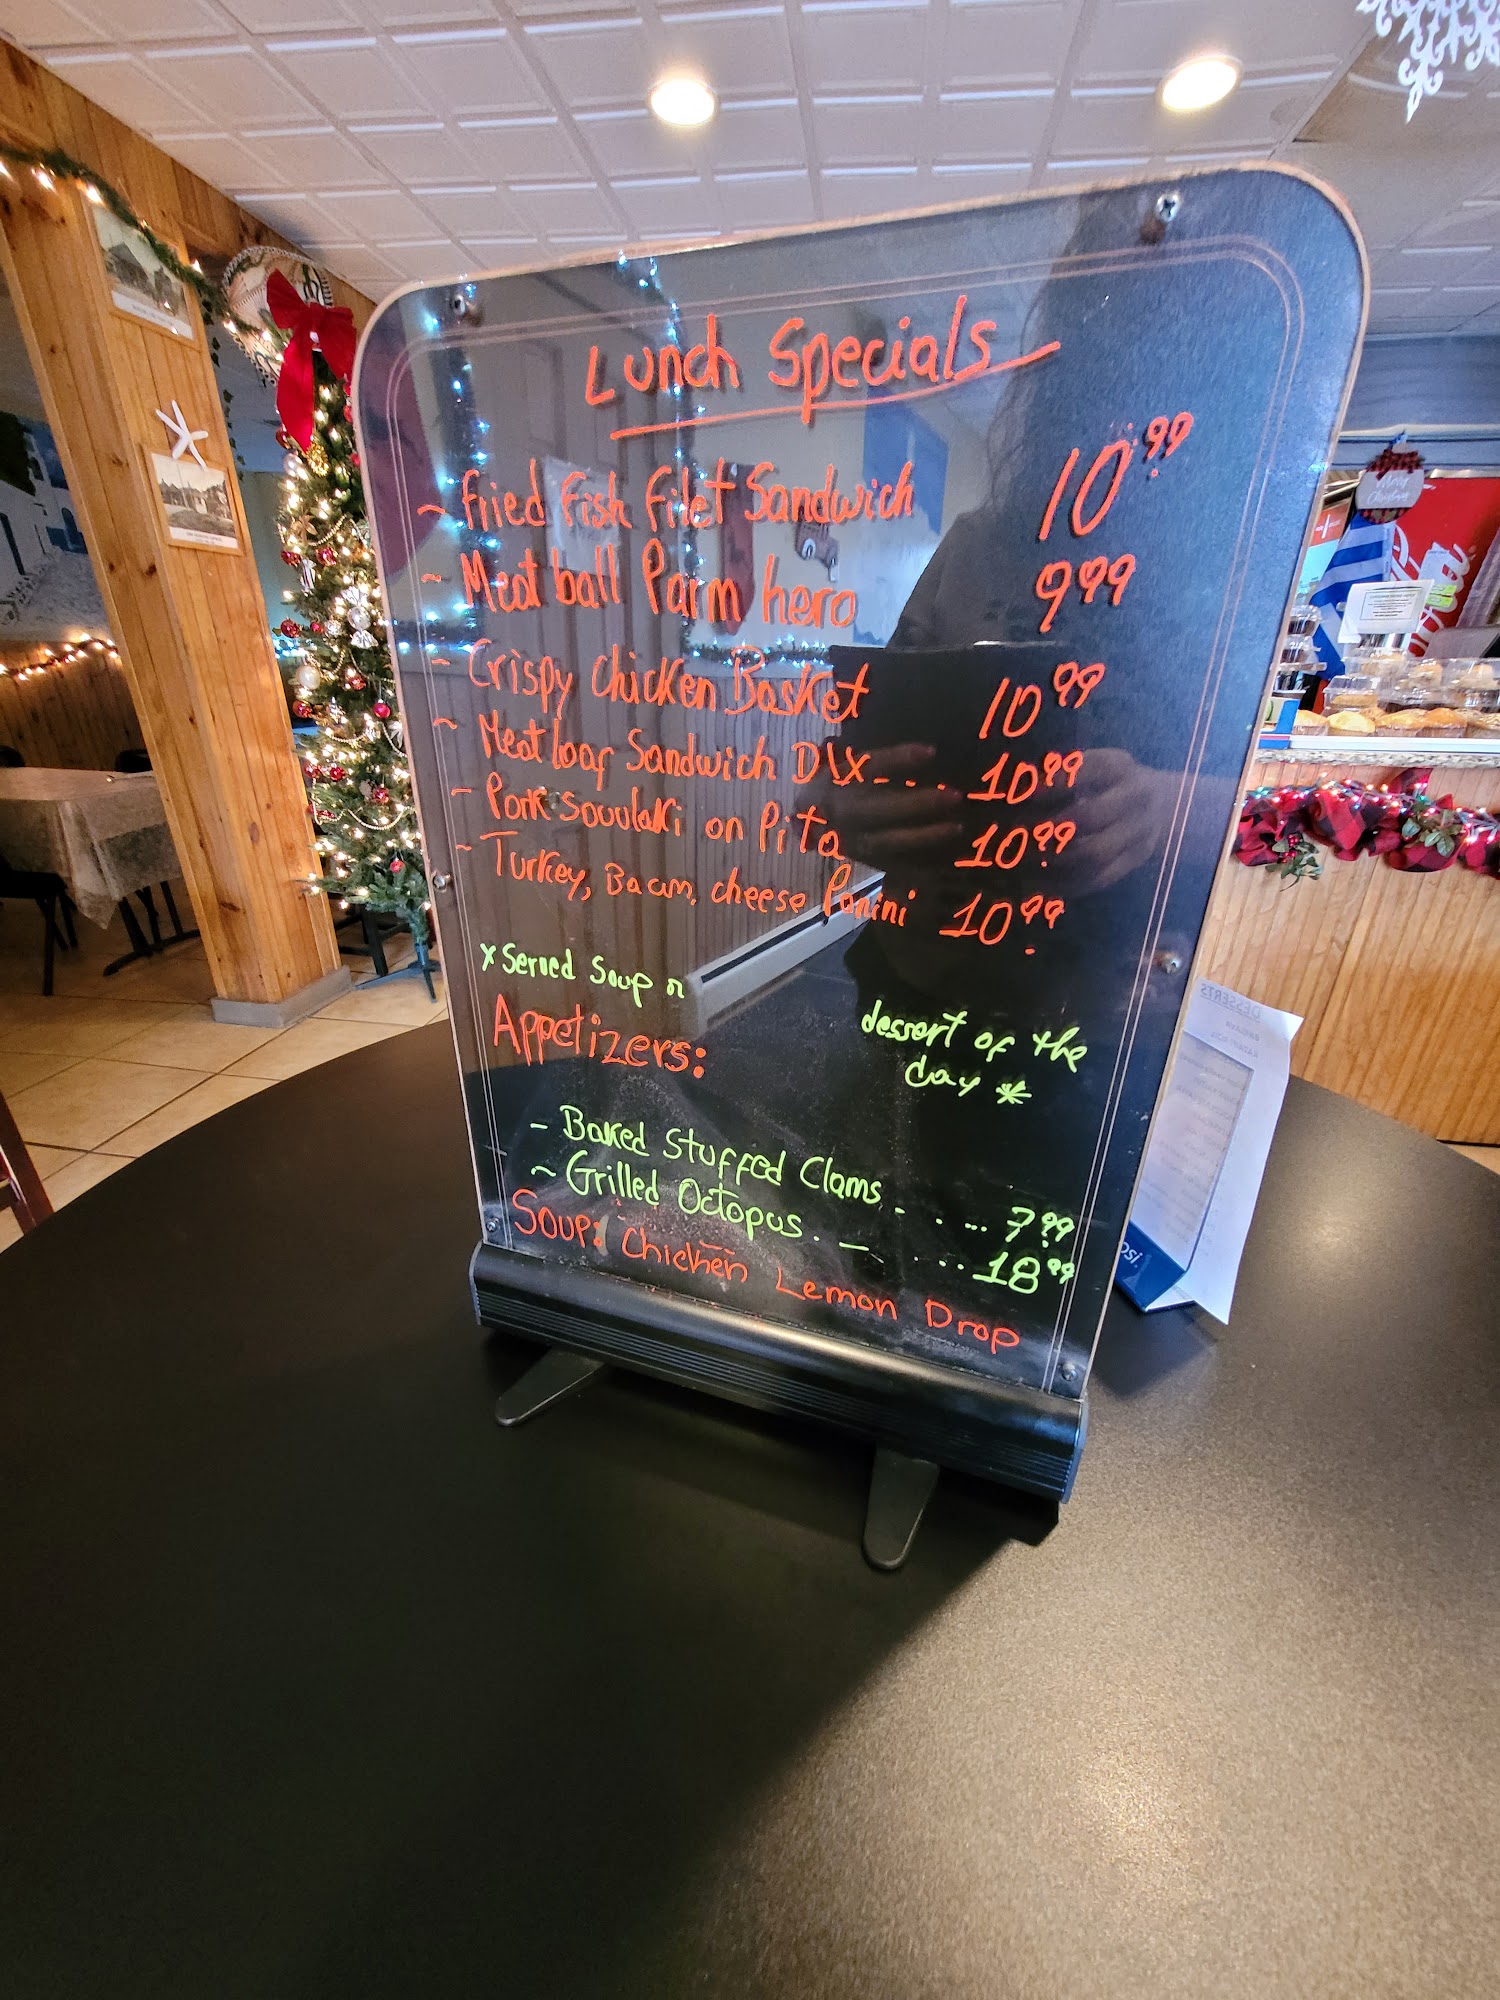 Lunch Specials
~ Fried Fish Filet Sandwich 10.99
~ Meat ball Parm hero 9.99
- Crispy Chicken Basket 10.99
~ Meat loaf Sandwich DLX - . . . 10.99
- Pork Souvlaki on Pita 10.99
- Turkey, Bacon, cheese Panini 10.99
x Served Soup or dessert of the
day *
Appetizers:
- Baked Stuffed Clams . . ... 7.99
~ Grilled Octopus . - . ... 18.99
Soup: Chicken Lemon Drop
DESSERTS
Merry
Christmas